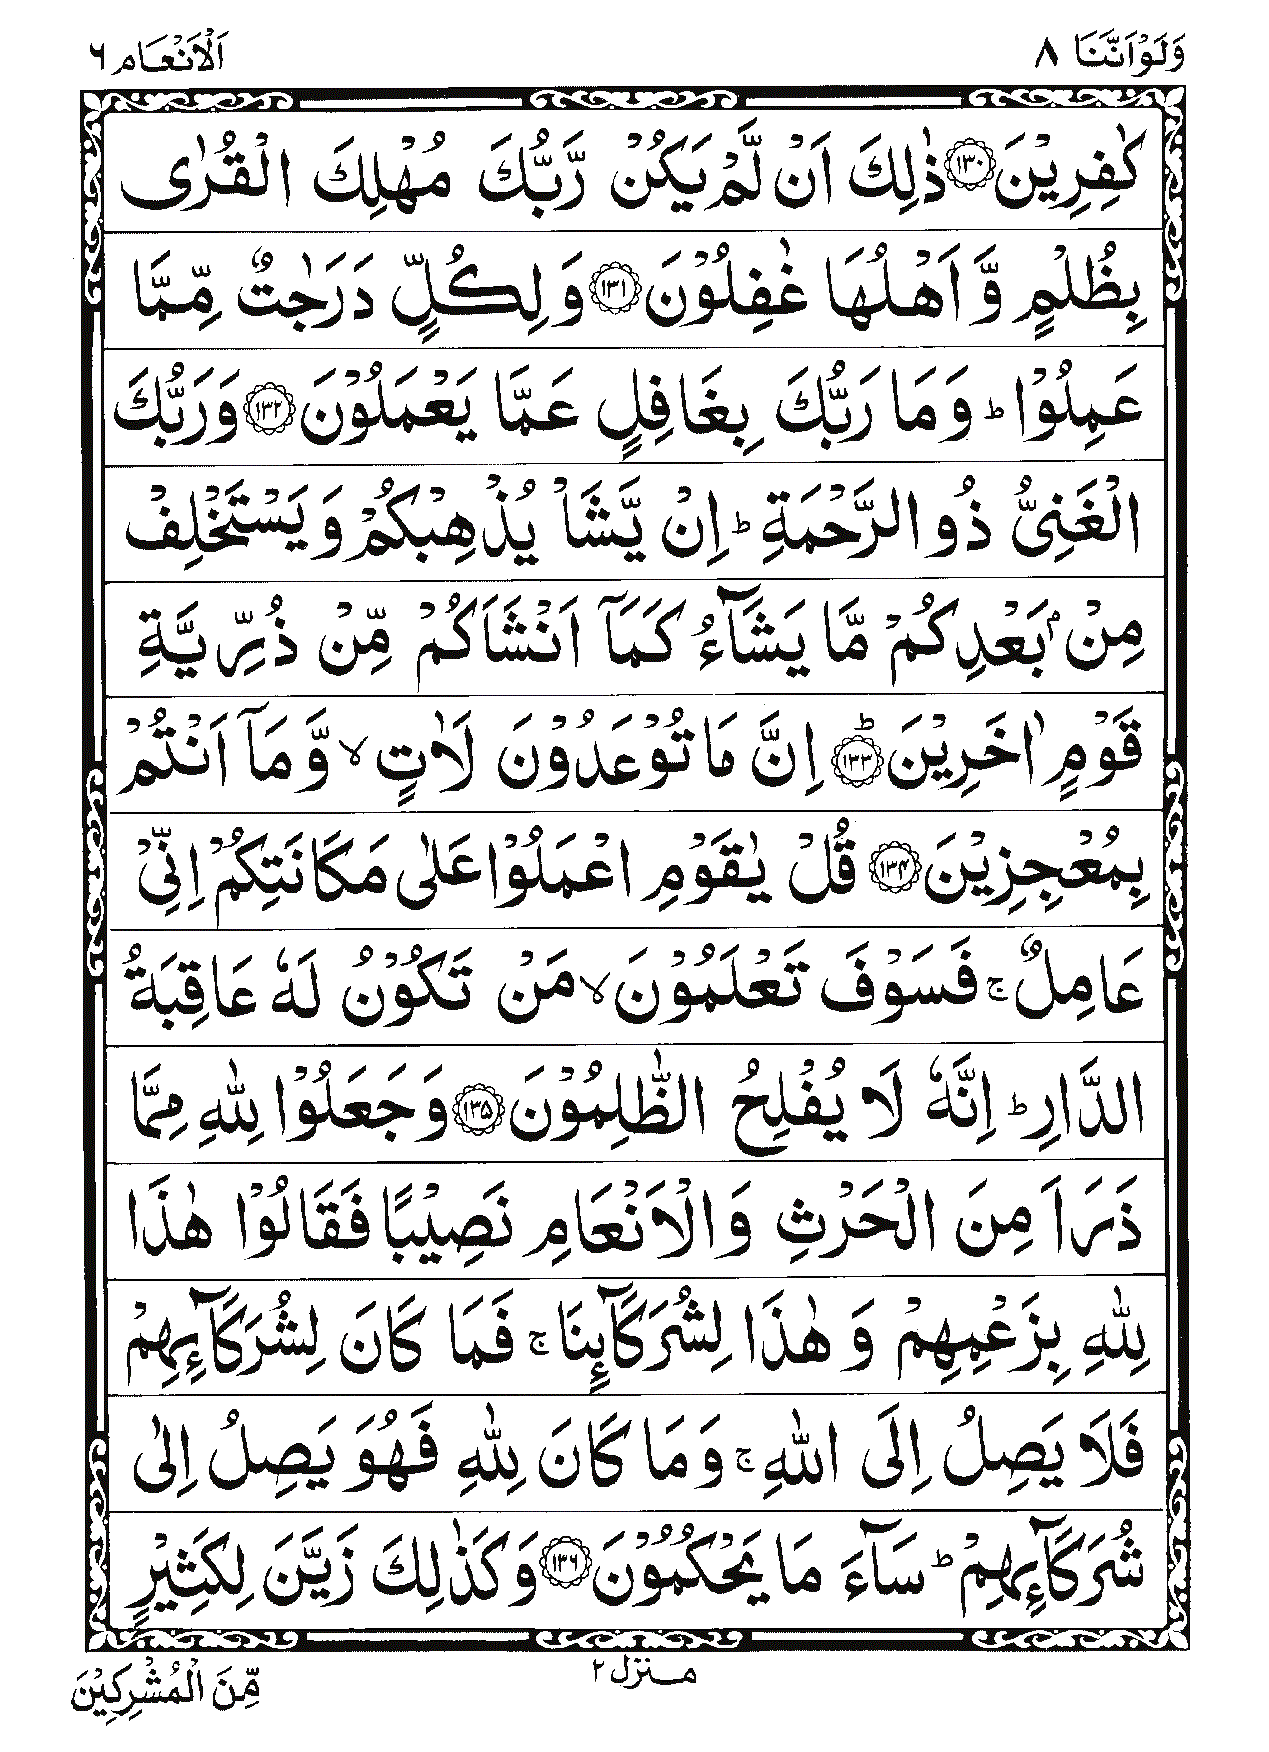 وَلَوْاَنَّنَا ٨
اَلْاَنْعَام ٦
كٰفِرِيْنَ ۝١٣٠ ذٰلِكَ اَنْ لَّمْ يَكُنْ رَّبُّكَ مُهْلِكَ الْقُرٰى
بِظُلْمٍ وَّ اَهْلُهَا غٰفِلُوْنَ ۝١٣١ وَ لِكُلٍّ دَرَجٰتٌ مِّمَّا
عَمِلُوْا ؕ وَ مَا رَبُّكَ بِغَافِلٍ عَمَّا يَعْمَلُوْنَ ۝١٣٢ وَرَبُّكَ
الْغَنِىُّ ذُو الرَّحْمَةِ ؕ اِنْ يَّشَاْ يُذْهِبْكُمْ وَ يَسْتَخْلِفْ
مِنْۢ بَعْدِكُمْ مَّا يَشَآءُ كَمَاۤ اَنْشَاَكُمْ مِّنْ ذُرِّيَّةِ
قَوْمٍ اٰخَرِيْنَ ؕ۝١٣٣ اِنَّ مَا تُوْعَدُوْنَ لَاٰتٍ ۙ وَّ مَاۤ اَنْتُمْ
بِمُعْجِزِيْنَ ۝١٣٤ قُلْ يٰقَوْمِ اعْمَلُوْا عَلٰى مَكَانَتِكُمْ اِنِّىْ
عَامِلٌ ۚ فَسَوْفَ تَعْلَمُوْنَ ۙ مَنْ تَكُوْنُ لَهٗ عَاقِبَةُ
الدَّارِ ؕ اِنَّهٗ لَا يُفْلِحُ الظّٰلِمُوْنَ ۝١٣٥ وَ جَعَلُوْا لِلّٰهِ مِمَّا
ذَرَاَ مِنَ الْحَرْثِ وَ الْاَنْعَامِ نَصِيْبًا فَقَالُوْا هٰذَا
لِلّٰهِ بِزَعْمِهِمْ وَ هٰذَا لِشُرَكَآئِنَا ۚ فَمَا كَانَ لِشُرَكَآئِهِمْ
فَلَا يَصِلُ اِلَى اللّٰهِ ۚ وَ مَا كَانَ لِلّٰهِ فَهُوَ يَصِلُ اِلٰى
شُرَكَآئِهِمْ ؕ سَآءَ مَا يَحْكُمُوْنَ ۝١٣٦ وَ كَذٰلِكَ زَيَّنَ لِكَثِيْرٍ
منزل ٢
مِّنَ الْمُشْرِكِيْنَ